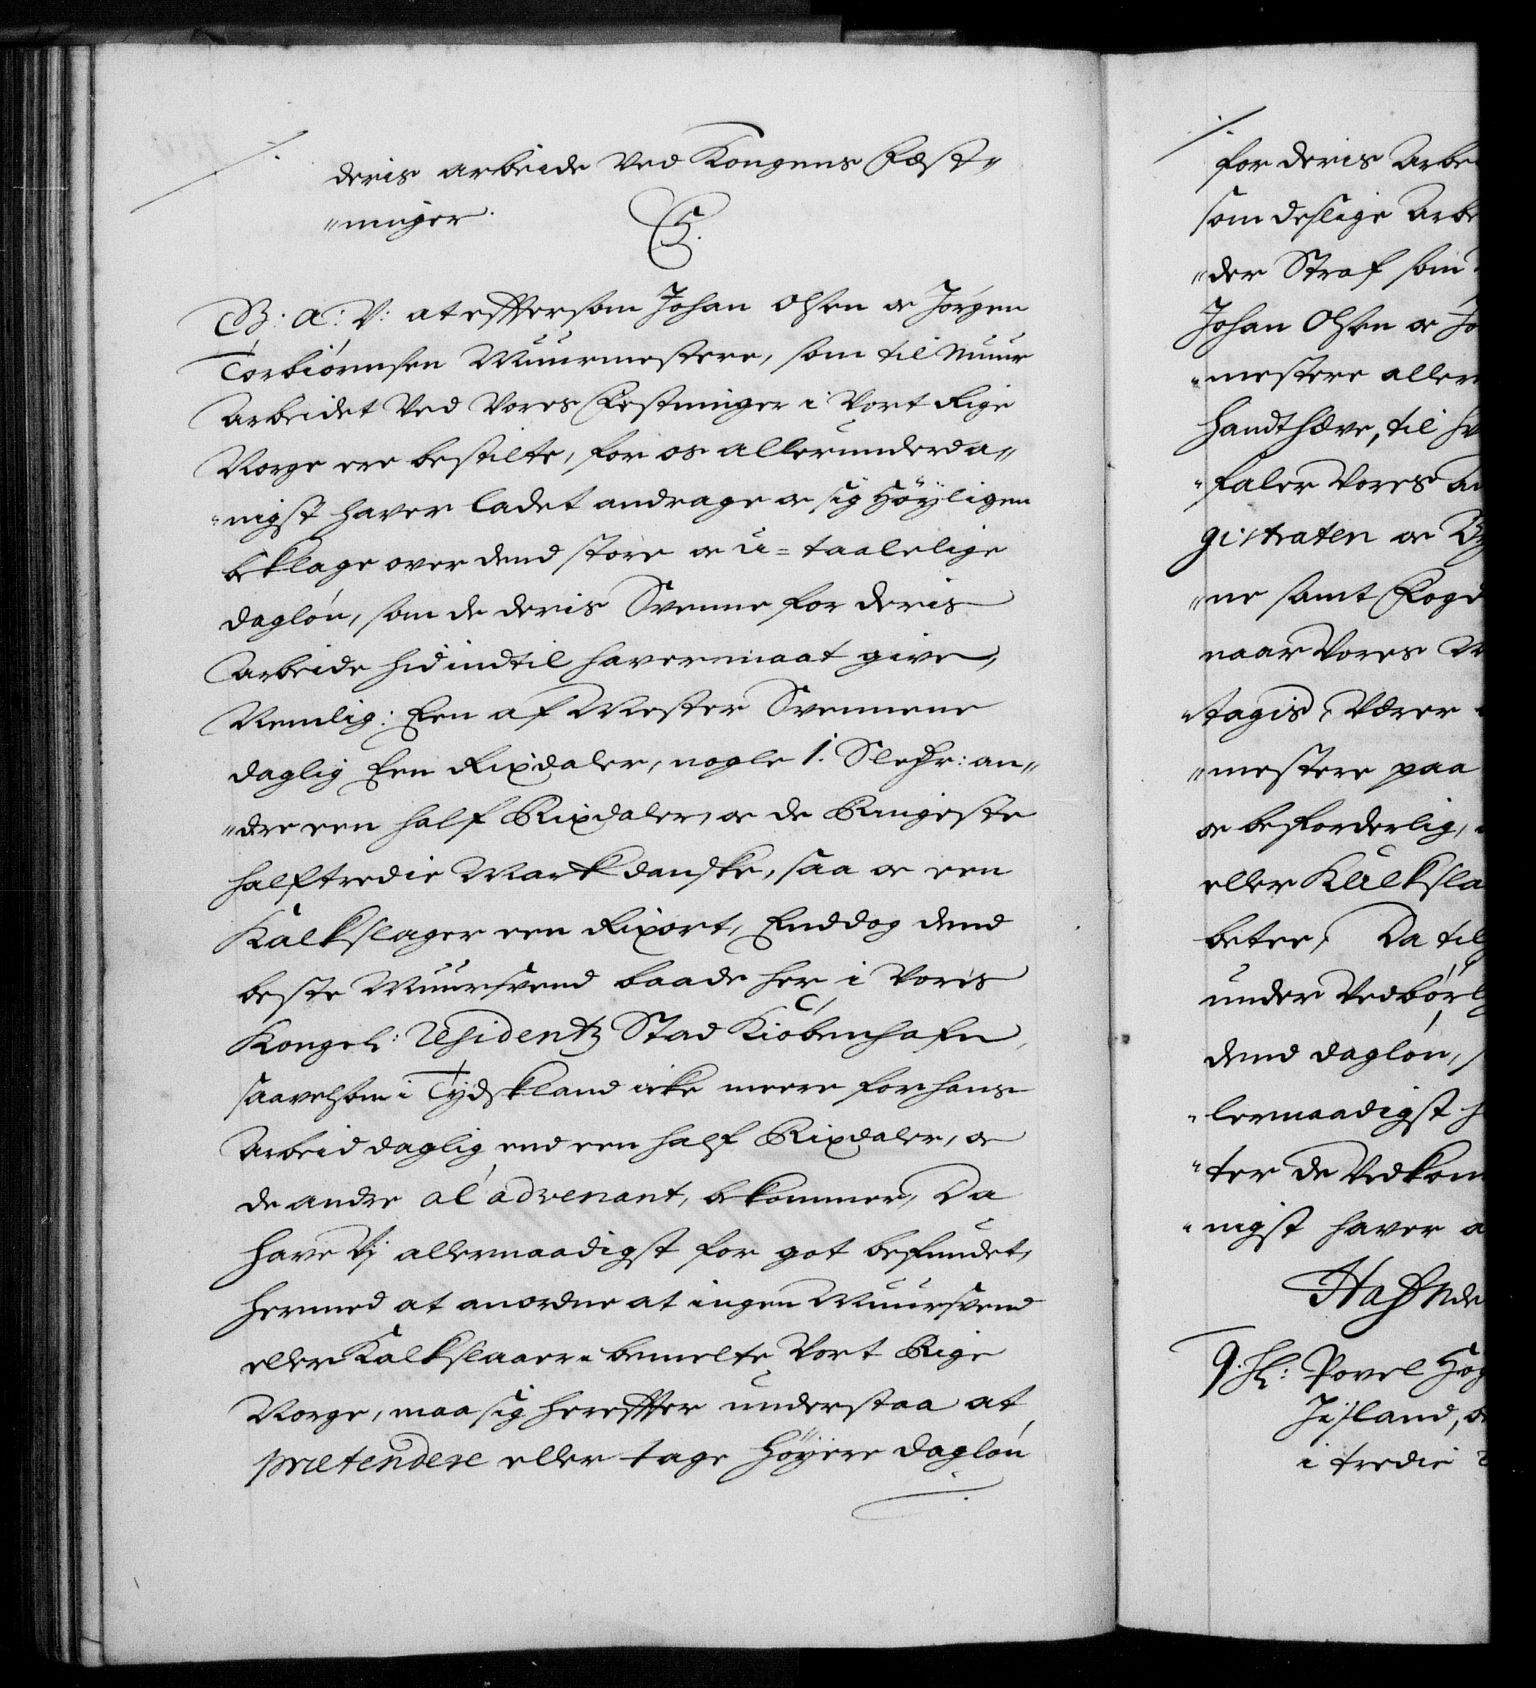 deris arbeide ved Kongens Fæst-
-ninger.
C5.
G: A: V: at eftersom Johan Olsen oc Jørgen
Torbiørnsen Muurmestere, som til Muur
Arbeidet ved Vores Festninger i Vort Rige
Norge ere bestilte, for os allerunderda-
-nigst haver ladet andrage oc sig Høÿligen
beklage over dend store oc u=taalelige
dagløn, som de deris Svenne for deris
Arbeide hidindtil haver maat give,
Nemlig: Een af Mester Svennene
daglig Een Rixdaler, nogle 1. Sledr: an-
-dre een half Rixdaler, oc de Ringeste
halftredie Mark danske, saa oc een
Kalkslager een Rixort, Enddog dend
beste Muursvend baade her i Voris
Kongel: Residentz Stad Kiøbenhafn,
saavelsom i Tydskland icke meere for hans
Arbeid daglig end een half Rixdaler, oc
de andre al'advenant, bekommer, Da
have Vj allernaadigst for got befundet,
hermed at anordne at ingen Muursvend
eller Kalkslaaer i bemelte Vort Rige
Norge, maa sig herefter understaa at
prætendere eller tage Høÿere dagløn
for deris Arbei
som deslige Arbe
-der Straf som
Johan Olsen oc Jo
-mestere aller
handthæve, til hv
-faler Vores
gistraten oc By
-ne samt Fogd
naar Vores M
-tagis, Værer
-mestere paa
oc beforderlig,
eller Kalksla
beter, Da til
under Vedbørl
dend dagløn,
-lernaadigst h
-ter de Vedkom
-nigst haver a
Hafnde
9. H: Povel Høy
Jisland,
i tredie